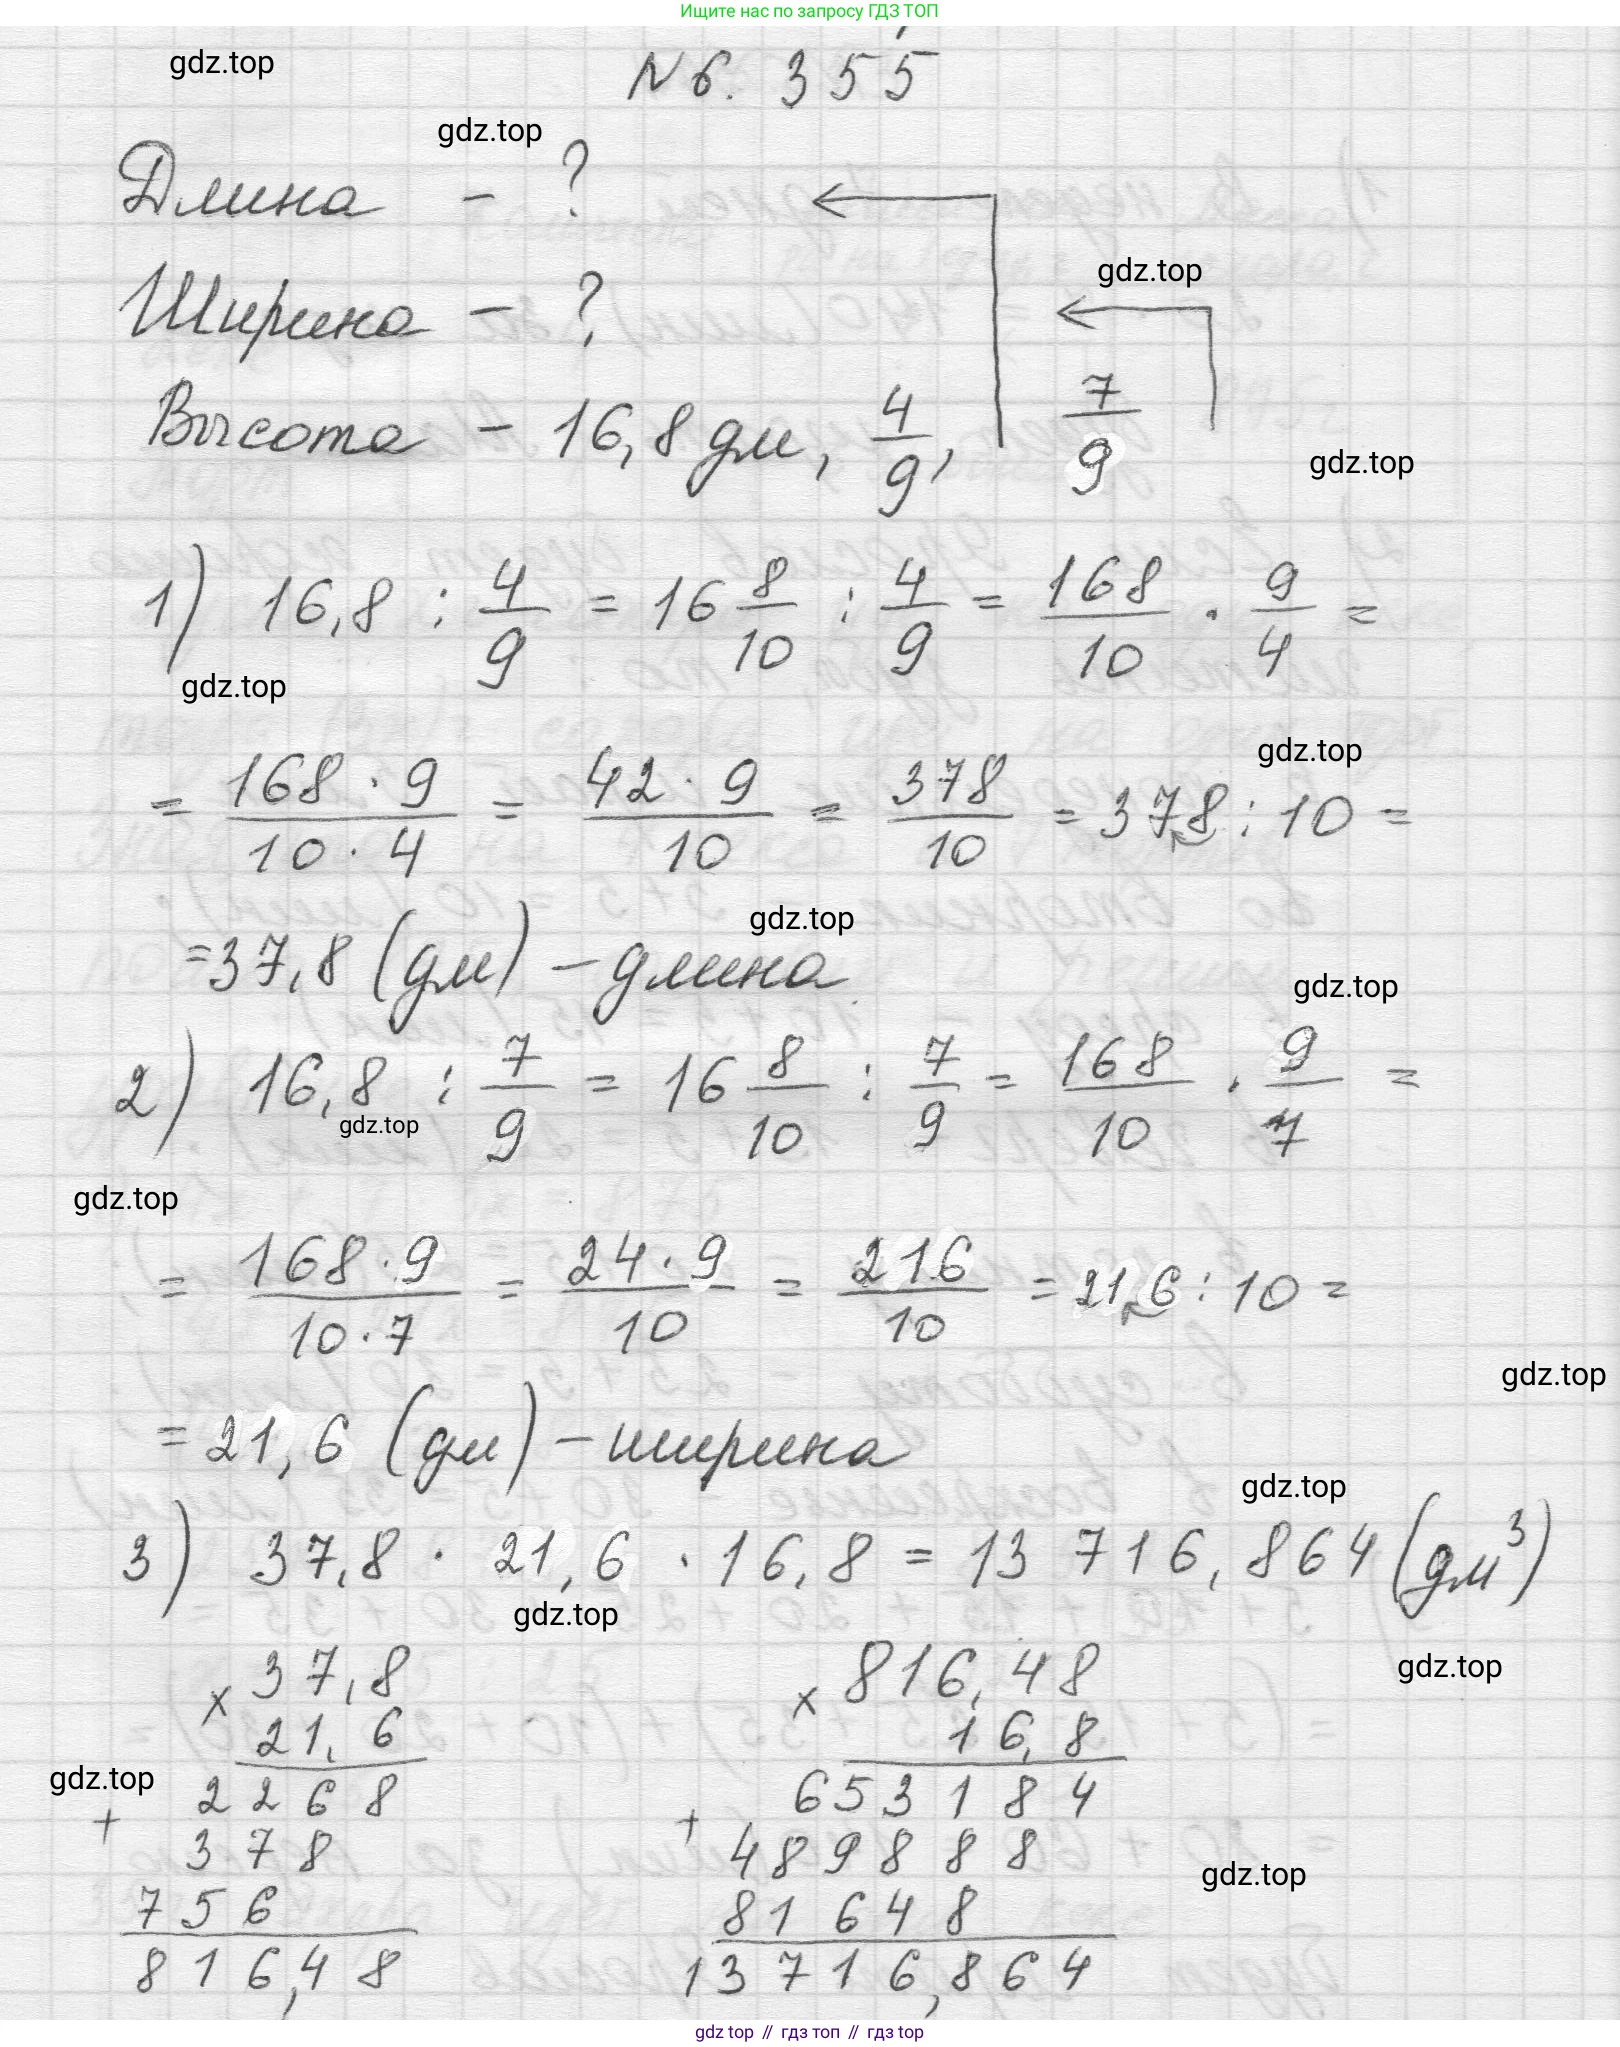 Ищите нас по запросу ГДЗ ТОП
gdz.top
N 6. 355
gdz.top
Длина - ?
Ширина - ?
gdz.top
Высота - 16,8 дм, 4/9, 7/9
gdz.top
1) 16,8 : 4/9 = 16 8/10 : 4/9 = 168/10 · 9/4 =
gdz.top
gdz.top
= 168 · 9/10 · 4 = 42 · 9/10 = 378/10 = 378 : 10 =
gdz.top
= 37,8 (дм) - длина
gdz.top
2) 16,8 : 7/9 = 16 8/10 : 7/9 = 168/10 · 9/7 =
gdz.top
gdz.top
= 168 · 9/10 · 7 = 24 · 9/10 = 216/10 = 21,6 : 10 =
gdz.top
= 21,6 (дм) - ширина
gdz.top
3) 37,8 · 21,6 · 16,8 = 13 716,864 (дм³)
gdz.top
gdz.top
× 37,8
21,6
gdz.top
2268
+ 378
756
816,48
× 816,48
16,8
653184
+ 489888
81648
13716,864
gdz.top
gdz top // гдз топ // гдз top